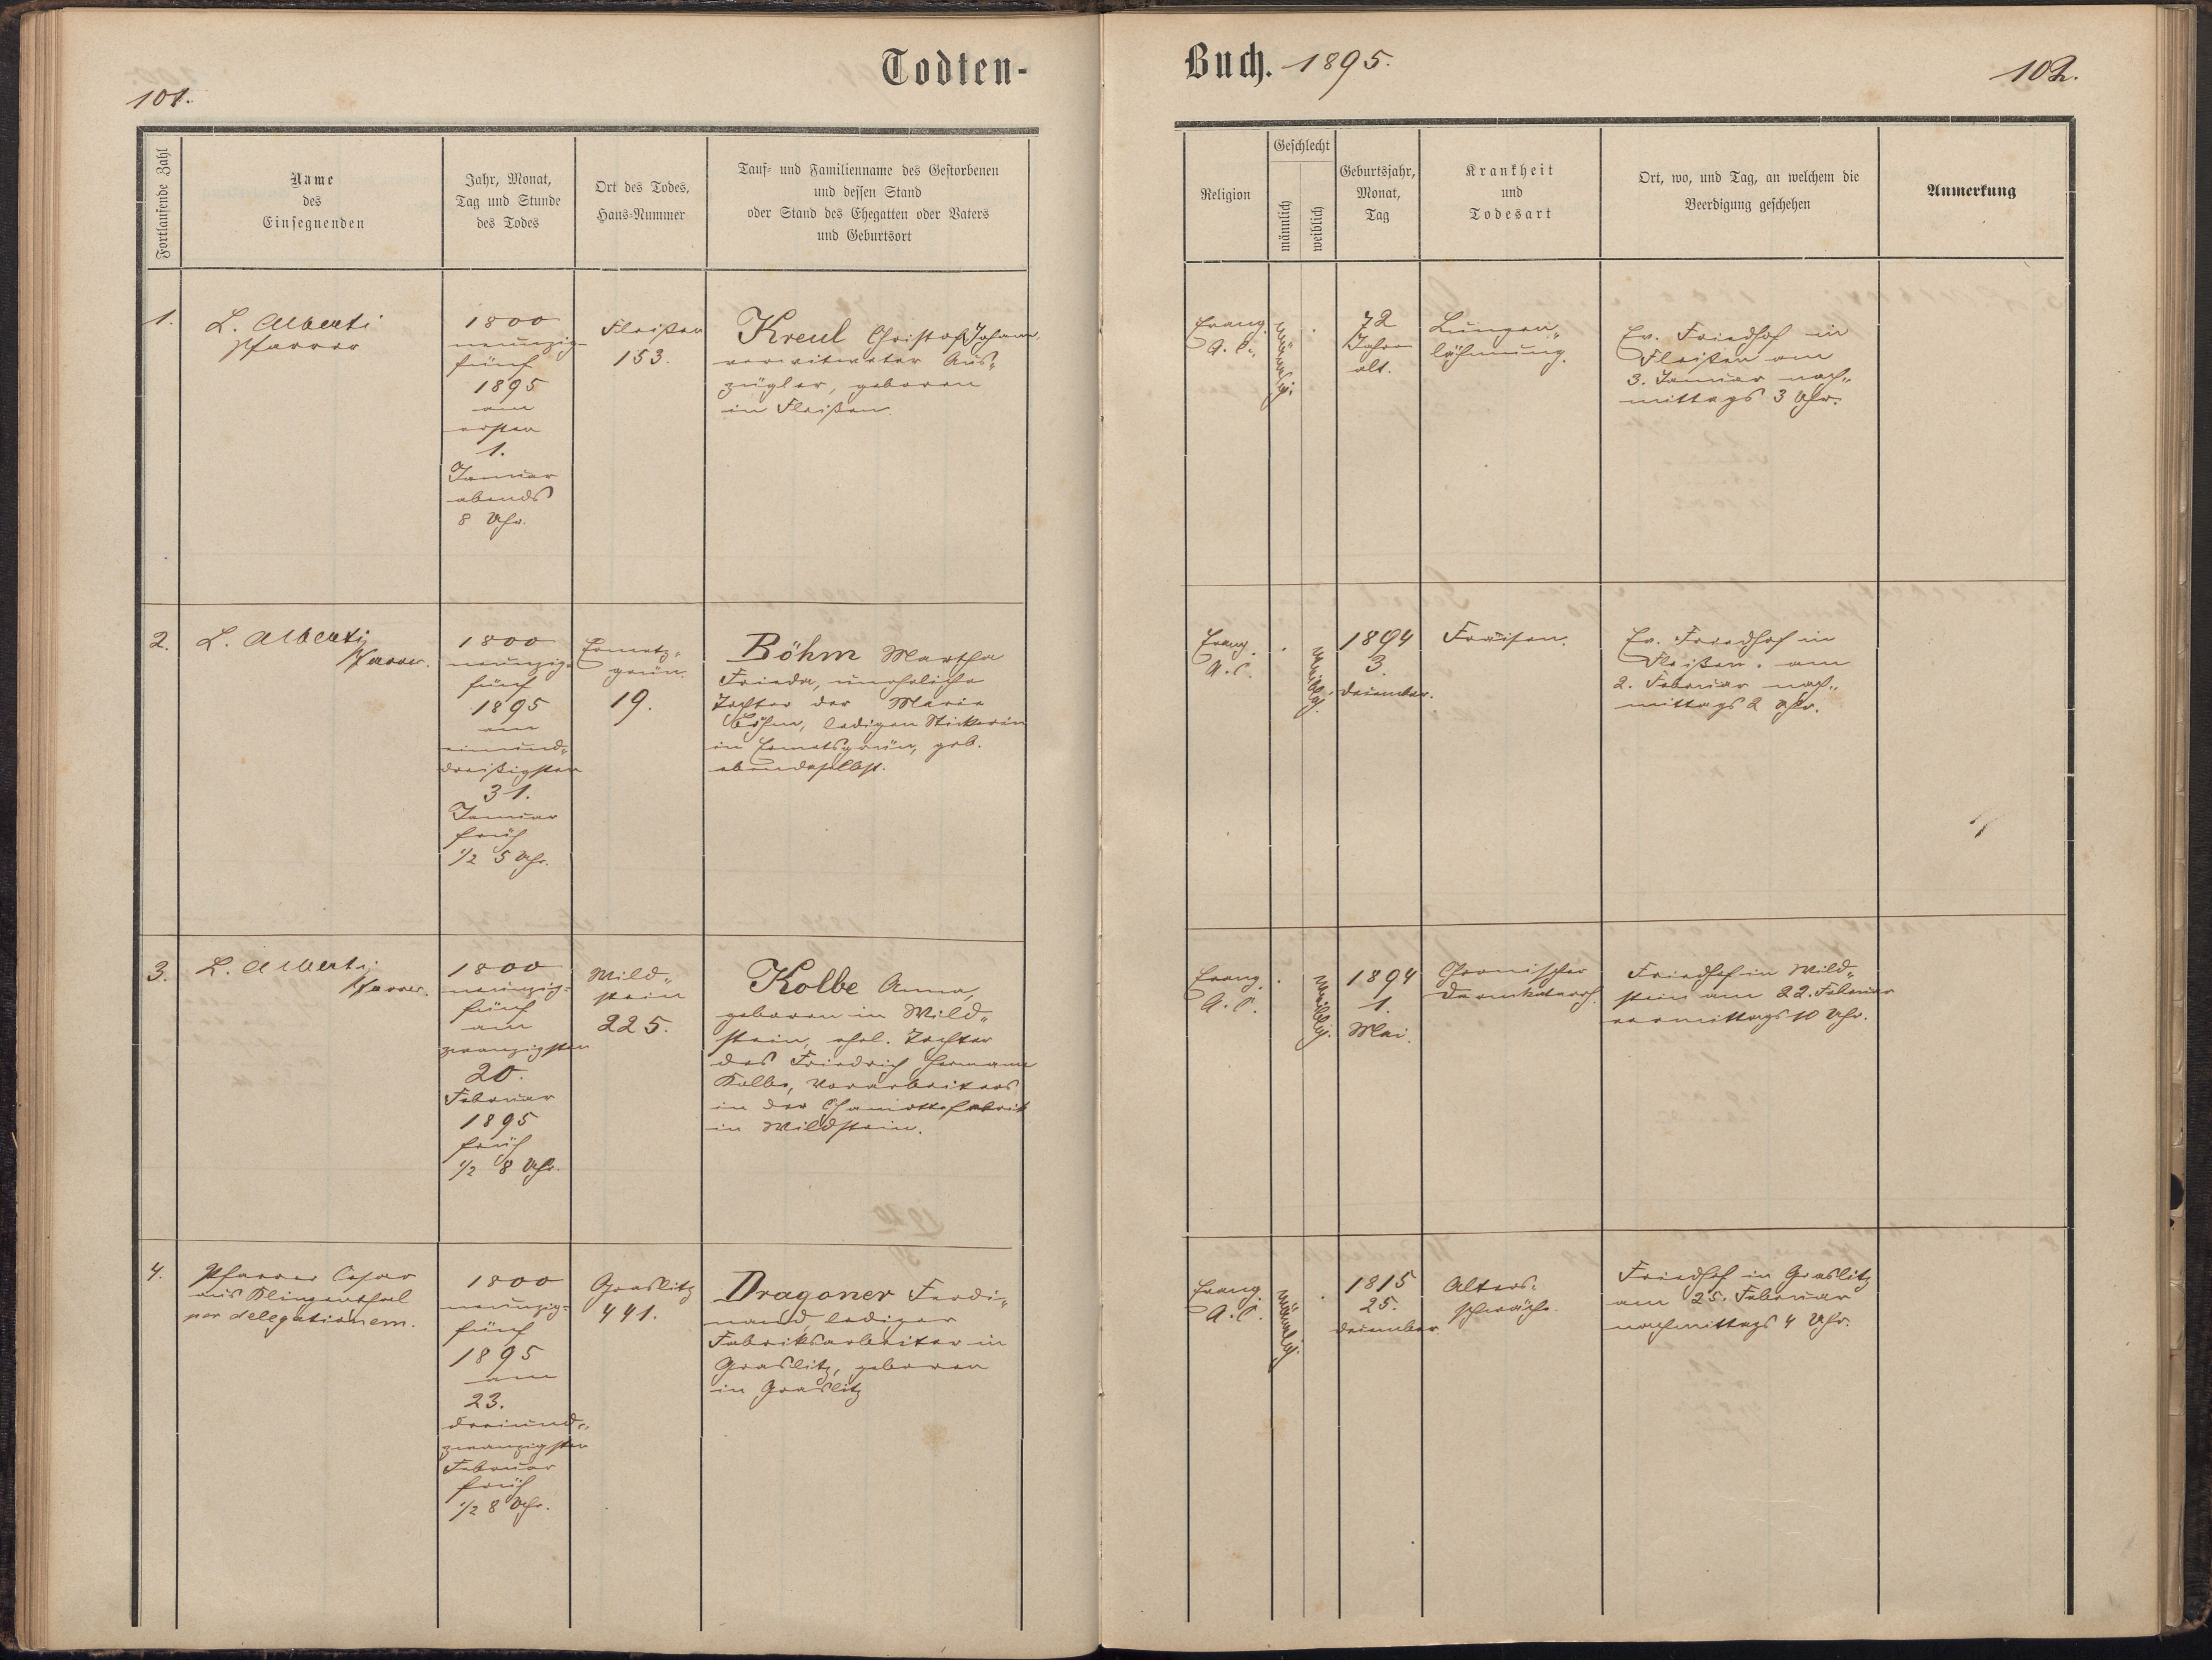 Todten-
101.
Fortlaufende Zahl
Name
des
Einsegnenden
Jahr, Monat,
Tag und Stunde
des Todes
Ort des Todes,
Haus-Nummer
Tauf- und Familienname des Gestorbenen
und dessen Stand
oder Stand des Ehegatten oder Vaters
und Geburtsort
1.
L. Alberti
Pfarrer
1800
neunzig-
fünf
1895
am
ersten
1.
Januar
abends
8 Uhr.
Fleißen
153.
Kreul Christof Johann,
verwitweter Aus-
zügler, geboren
in Fleißen.
2.
L. Alberti
Pfarrer.
1800
neunzig-
fünf
1895
am
einund-
dreißigsten
31.
Januar
früh
1/2 5 Uhr.
Ermets-
grün
19.
Böhm Martha
Frieda, uneheliche
Tochter der Marie
Böhm, ledigen Stickerin
in Ermetsgrün, geb.
ebendaselbst.
3.
L. Alberti
Pfarrer.
1800
neunzig-
fünf
am
zwanzigsten
20.
Februar
1895
früh
1/2 8 Uhr.
Wild-
stein
225.
Kolbe Anna,
geboren in Wild-
stein, ehel. Tochter
des Friedrich Hermann
Kolbe, Vorarbeiters
in der Chamottefabrik
in Wildstein.
4.
Pfarrer
aus Klingenthal
per delegationem.
1800
neunzig-
fünf
1895
am
23.
dreiund-
zwanzigsten
Februar
früh
1/2 8 Uhr.
Graslitz
441.
Dragoner Ferdi-
nand, lediger
Fabriksarbeiter in
Graslitz, geboren
in Graslitz
Buch. 1895.
102.
Religion
Geschlecht
männlich
weiblich
Geburtsjahr,
Monat,
Tag
Krankheit
und
Todesart
Ort, wo, und Tag, an welchem die
Beerdigung geschehen
Anmerkung
Evang.
A. C.
männlich.
72
Jahre
alt.
Lungen-
lähmung.
Ev. Friedhof in
Fleißen am
3. Januar nach-
mittags 3 Uhr.
Evang.
A. C.
weiblich.
1894
3.
Dezember.
Fraisen.
Ev. Friedhof in
Fleißen am
2. Februar nach-
mittags 2 Uhr.
Evang.
A. C.
weiblich.
1894
1.
Mai.
Chronischer
Darmkatarrh.
Friedhof in Wild-
stein am 22. Februar
vormittags 10 Uhr.
Evang.
A. C.
männlich.
1815
25.
Dezember.
Alters-
schwäche.
Friedhof in Graslitz
am 25. Februar
nachmittags 4 Uhr.